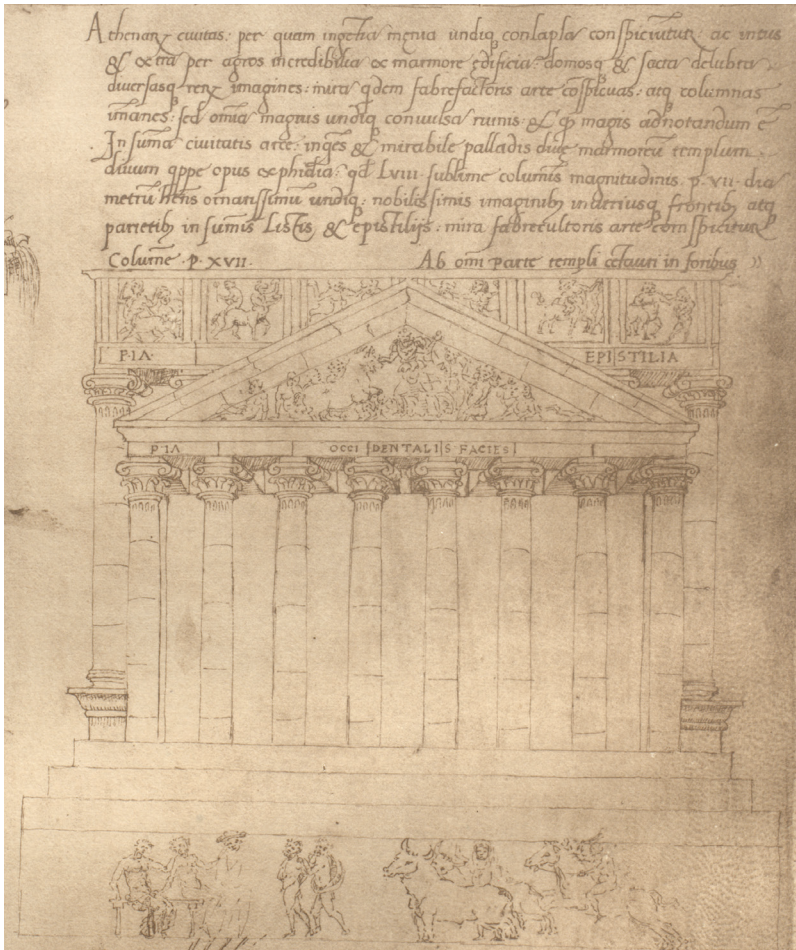 Athenarꝝ civitas: per quam ingẽtia męnia undiq conlapsa conspiciuntur: ac intus
& extra per agros incredibilia ex marmore ędificia: domosq & sacra delubra:
diversasq rerꝝ imagines: mira qdem fabrefactoris arte cõspicuas: atq columnas
imanes: sed omĩa magnis undiq convulsa ruinis: & qp magis adnotandum ẽ
In sũma civitatis arce: inges & mirabile palladis divę marmoreũ templum.
divum qppe opus ex phidia: qd LVIII. sublime columis magnitudinis. p. VII. dia
metrũ hẽns ornatissimũ undiq: nobilissimis imaginibȝ in utriusq frontibȝ atq
parietibȝ in sũmis Listis, & epistilijs: mira fabrecultoris arte conspicitur
Colume. p. XVII. Ab omĩ parte templi cẽtauri in foribus
P·I A· EPISTILIA
P I A OCCIDENTALIS FACIES